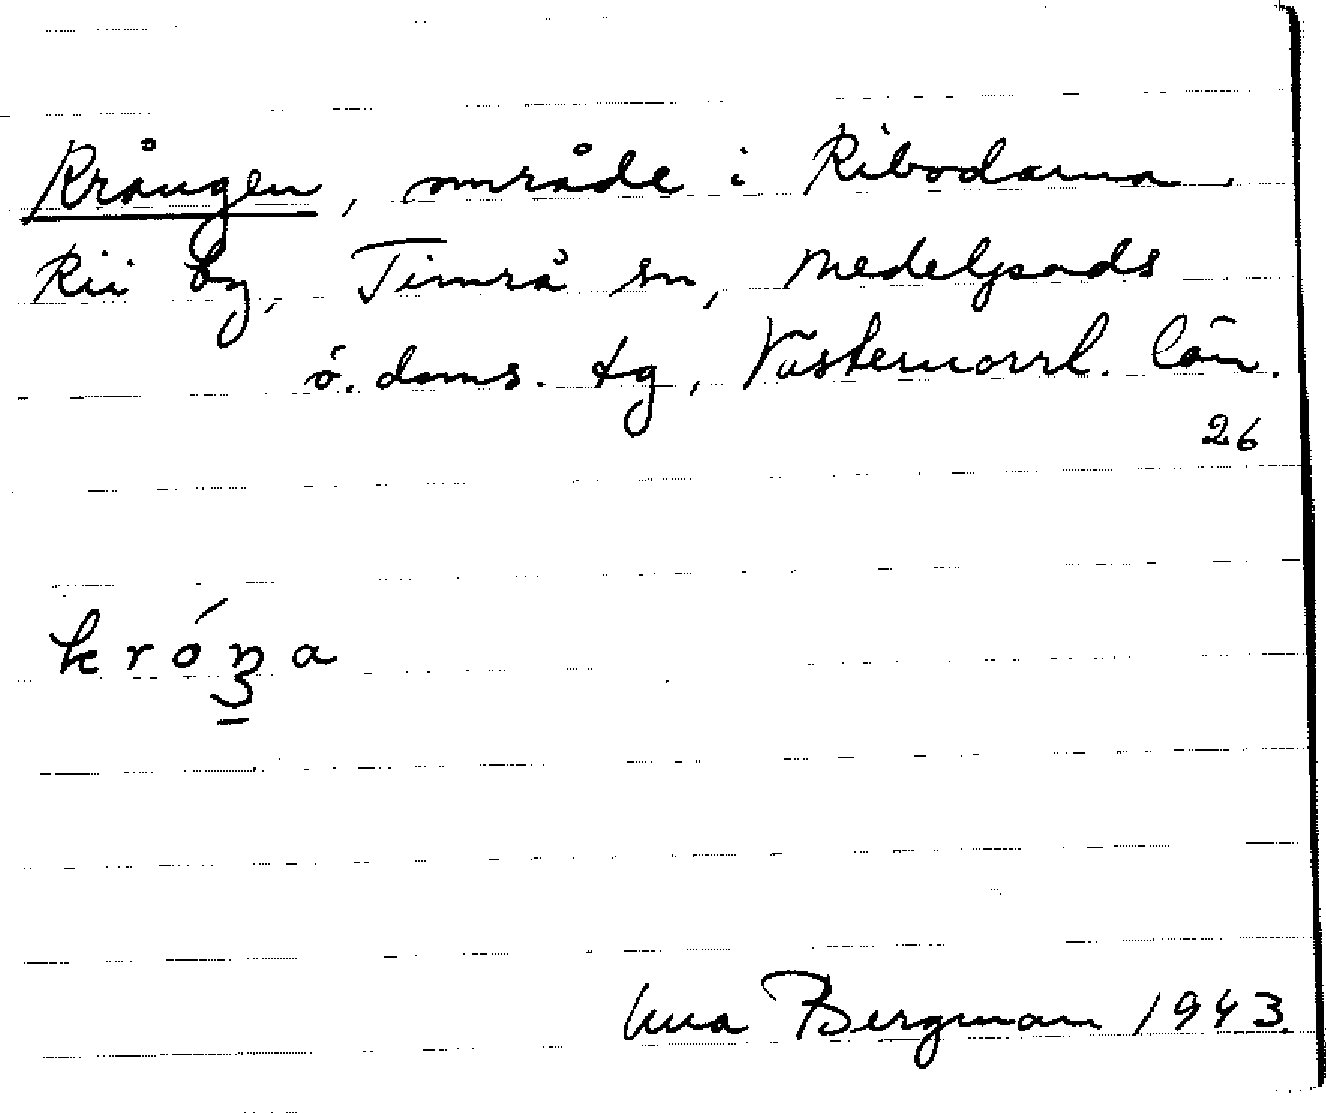 Krången, område i Ribodarna
Rii by, Timrå sn, Medelpads
ö. doms. tg, Västernorrl. län.
26
króŋa
Una Bergman 1943.